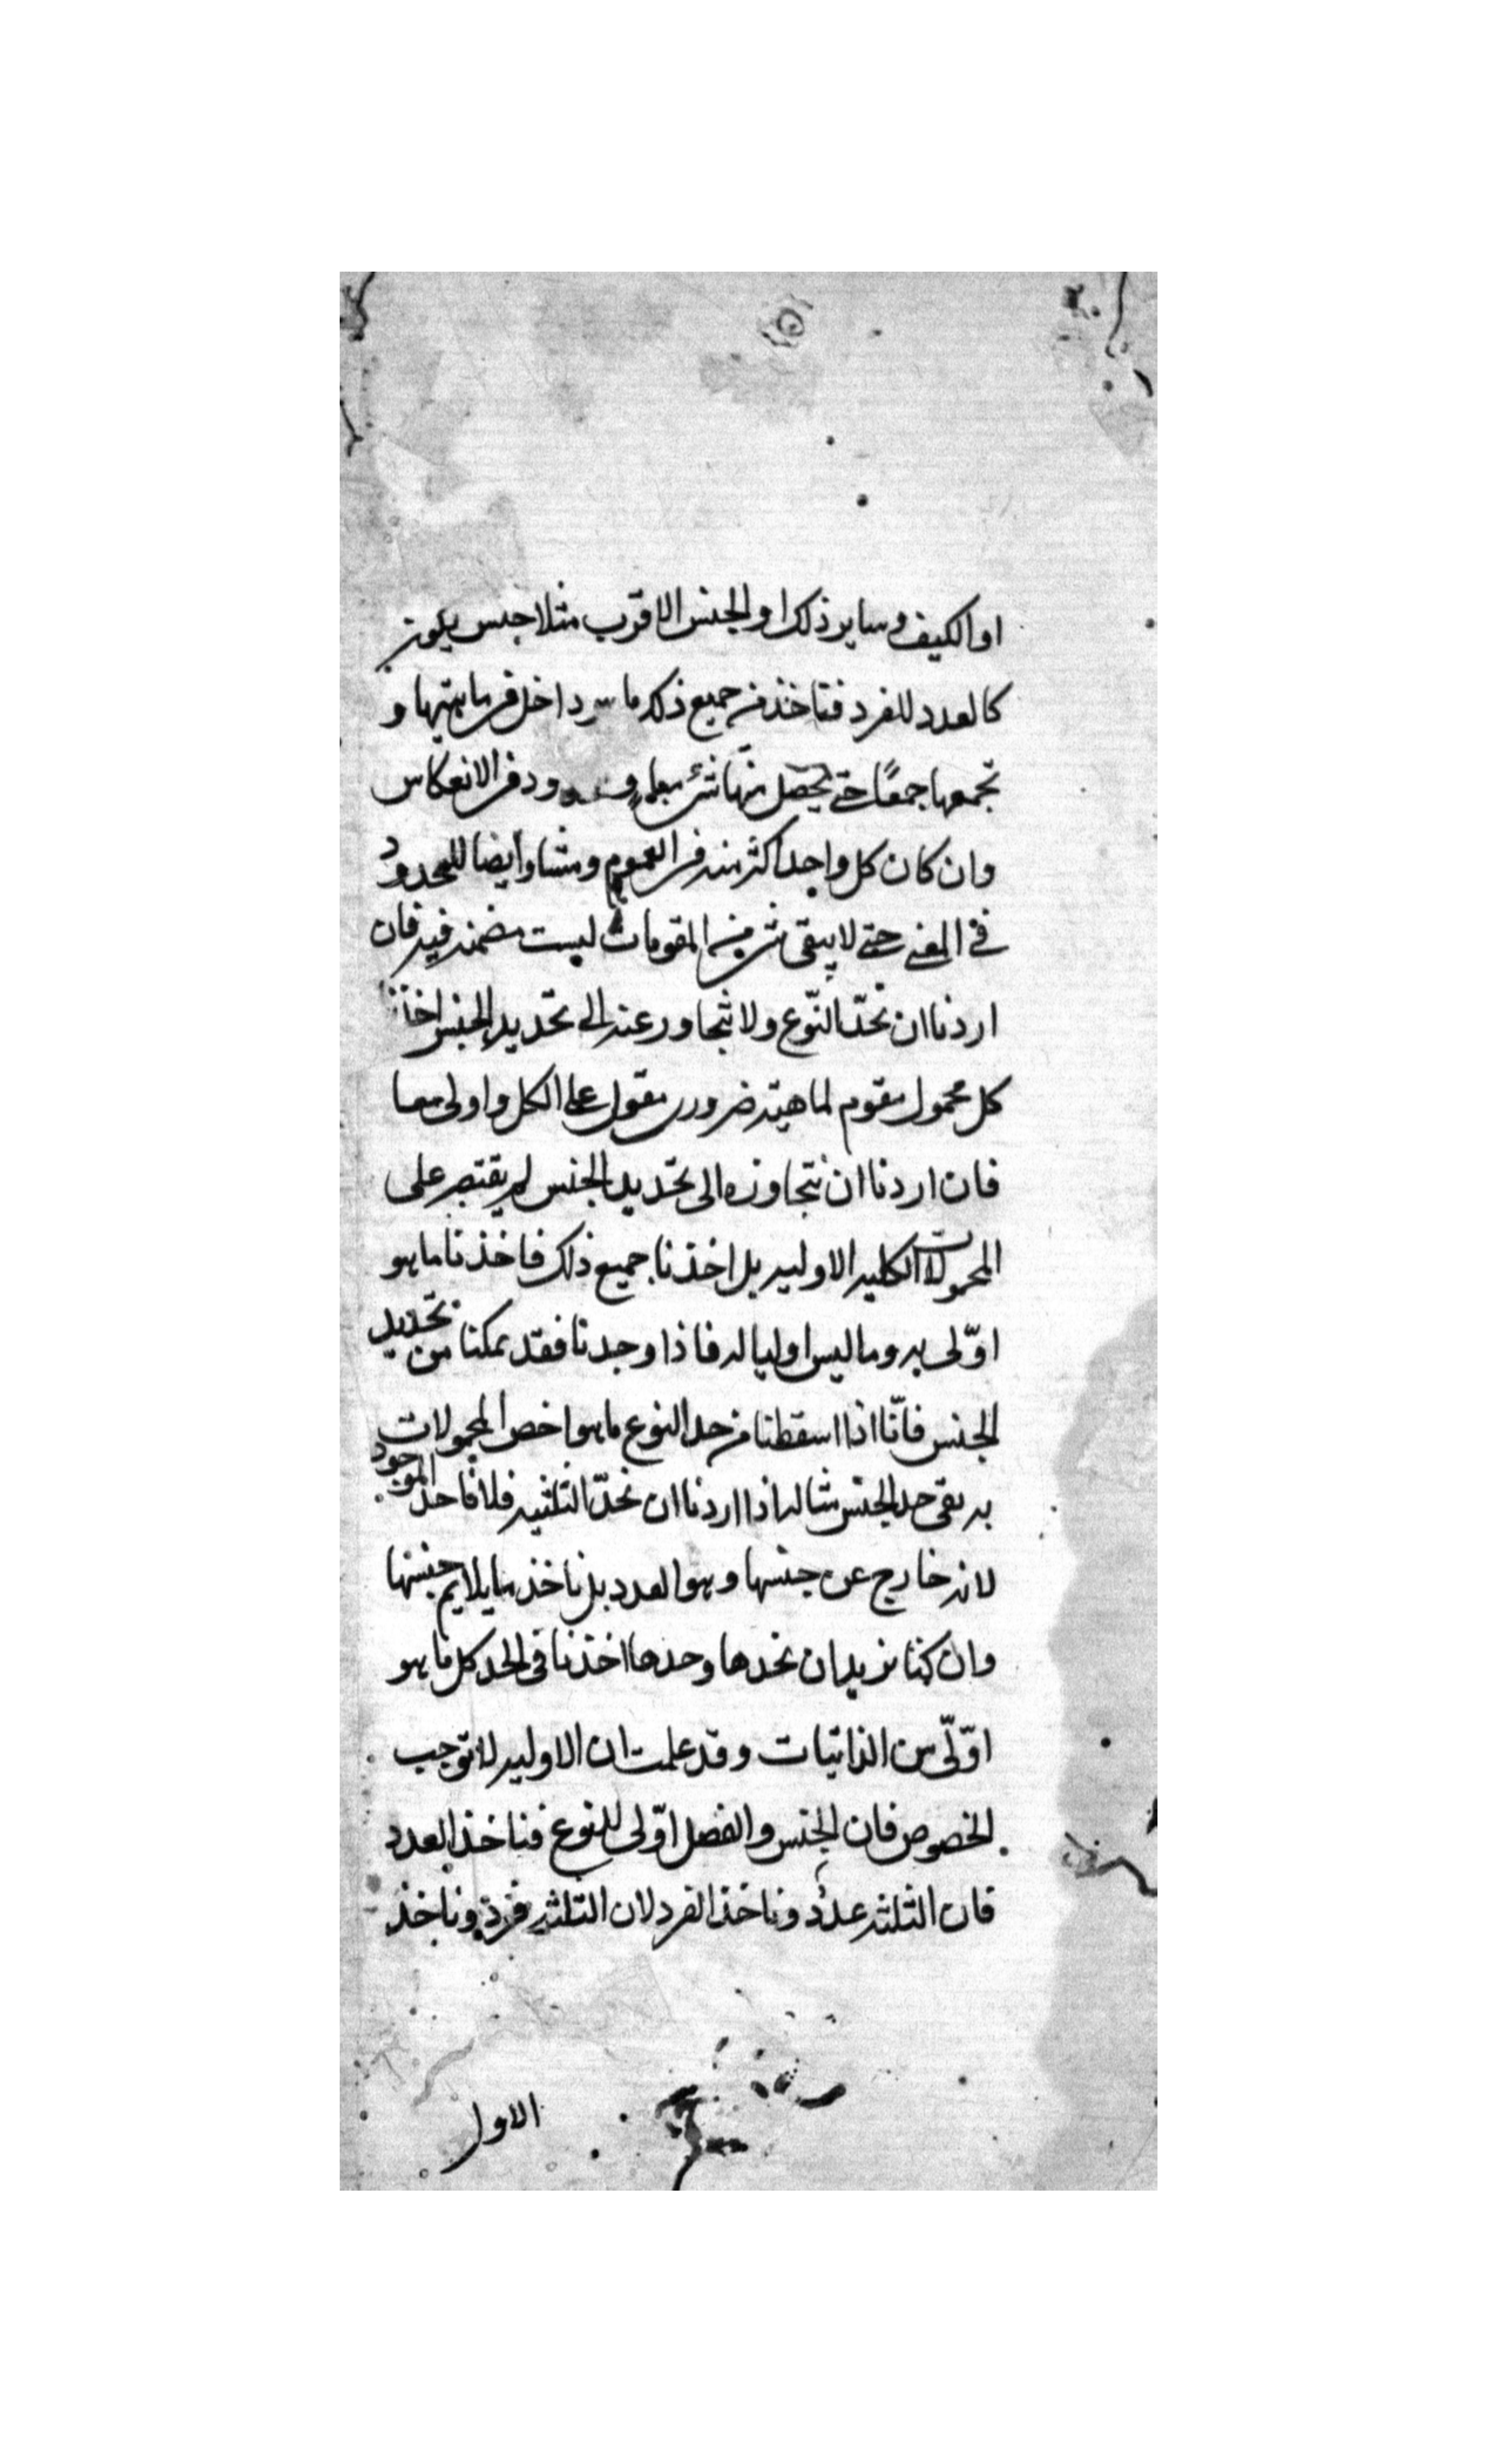 او الكيف وساير ذلك او الجنس الاقرب مثلا جنس
كالعدد للفرد فتاخذ من جميع ذلك ما داخل فى ماهيتها و
تجمعها جمعًا حتى يحصل منها شئ فى الانعكاس
وان كان كل واحد اكثر منه فى العموم ومساو ايضا للمحدود
فى المعنى حتى لا يبقى شئ من المقومات ليست مضمنه فيه فان
اردنا ان نحدّ النّوع ولا نتجاور عنه الى تحديد الجنس اخذنا
كل محمول مقوم لماهيته ضرورى مقول على الكل واولى معا
فان اردنا ان نتجاوزه الى تحديد الجنس لم يقتصر على
المحمولات الكليه الاوليه بل اخذنا جميع ذلك فاخذنا ما هو
اوّلى به وما ليس اوليا له فاذا وجدنا فقد تمكنا من تحديد
الجنس فانّا اذا اسقطنا من حد النوع ما هو اخص المحمولات
به بقى حد الجنس مثاله اذا اردنا ان نحدّ الثلثيه فلا ناخذ الموجود
لانه خارج عن جنسها وهو العدد بل ناخذ ما يلايم جنسها
وان كنا نريد ان نحدها وحدها اخذنا فى الحد كل ما هو
اوّلى من الذاتيات وقد علمت ان الاوليه لا توجب
الخصوص فان الجنس والفصل اوّلى للنوع فناخذ العدد
فان الثلثه عدد وناخذ الفرد لان الثلثه فرد وناخذ
الاول